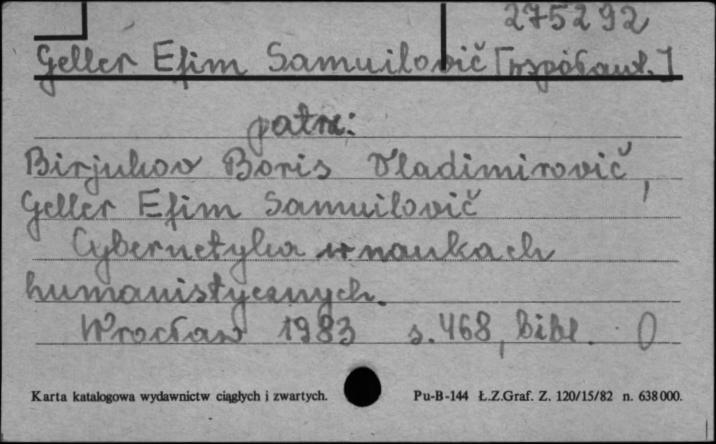 275292
Geller Efim Samuilovič [współaut.]
patrz:
Birjukov Boris Vladimirovič,
Geller Efim Samuilovič
Cybernetyka w naukach
humanistycznych.
Wrocław 1983 s. 468, bibl. 0
Karta katalogowa wydawnictw ciągłych i zwartych. Pu-B-144 Ł.Z.Graf. Z. 120/15/82 n. 638000.